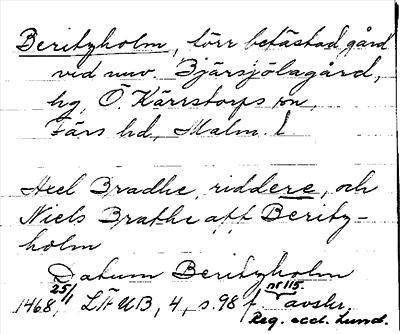 Beritzholm, förr befästad gård
vid nuv. Bjärsjölagård,
hg, Ö. Kärrstorps sn,
Färs hd, Malm. l
Axel Bradhe, riddere, och
Niels Brathe aff Beritz-
holm
Datum Beritzholm
1468, 25/1, LÄUB, 4, s. 98 f. nr 115. avskr.
Reg. eccl. Lund.